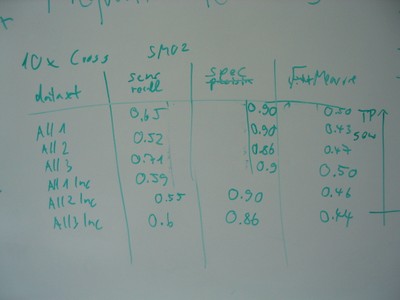 10x Cross SMO2
dataset sens recall spec F-Measure
All 1 0.65 0.90 0.50 TP
All 2 0.52 0.90 0.43
All 3 0.71 0.86 0.47
All 1 Inc 0.59 0.9 0.50
All 2 Inc 0.55 0.90 0.46
All 3 Inc 0.6 0.86 0.44